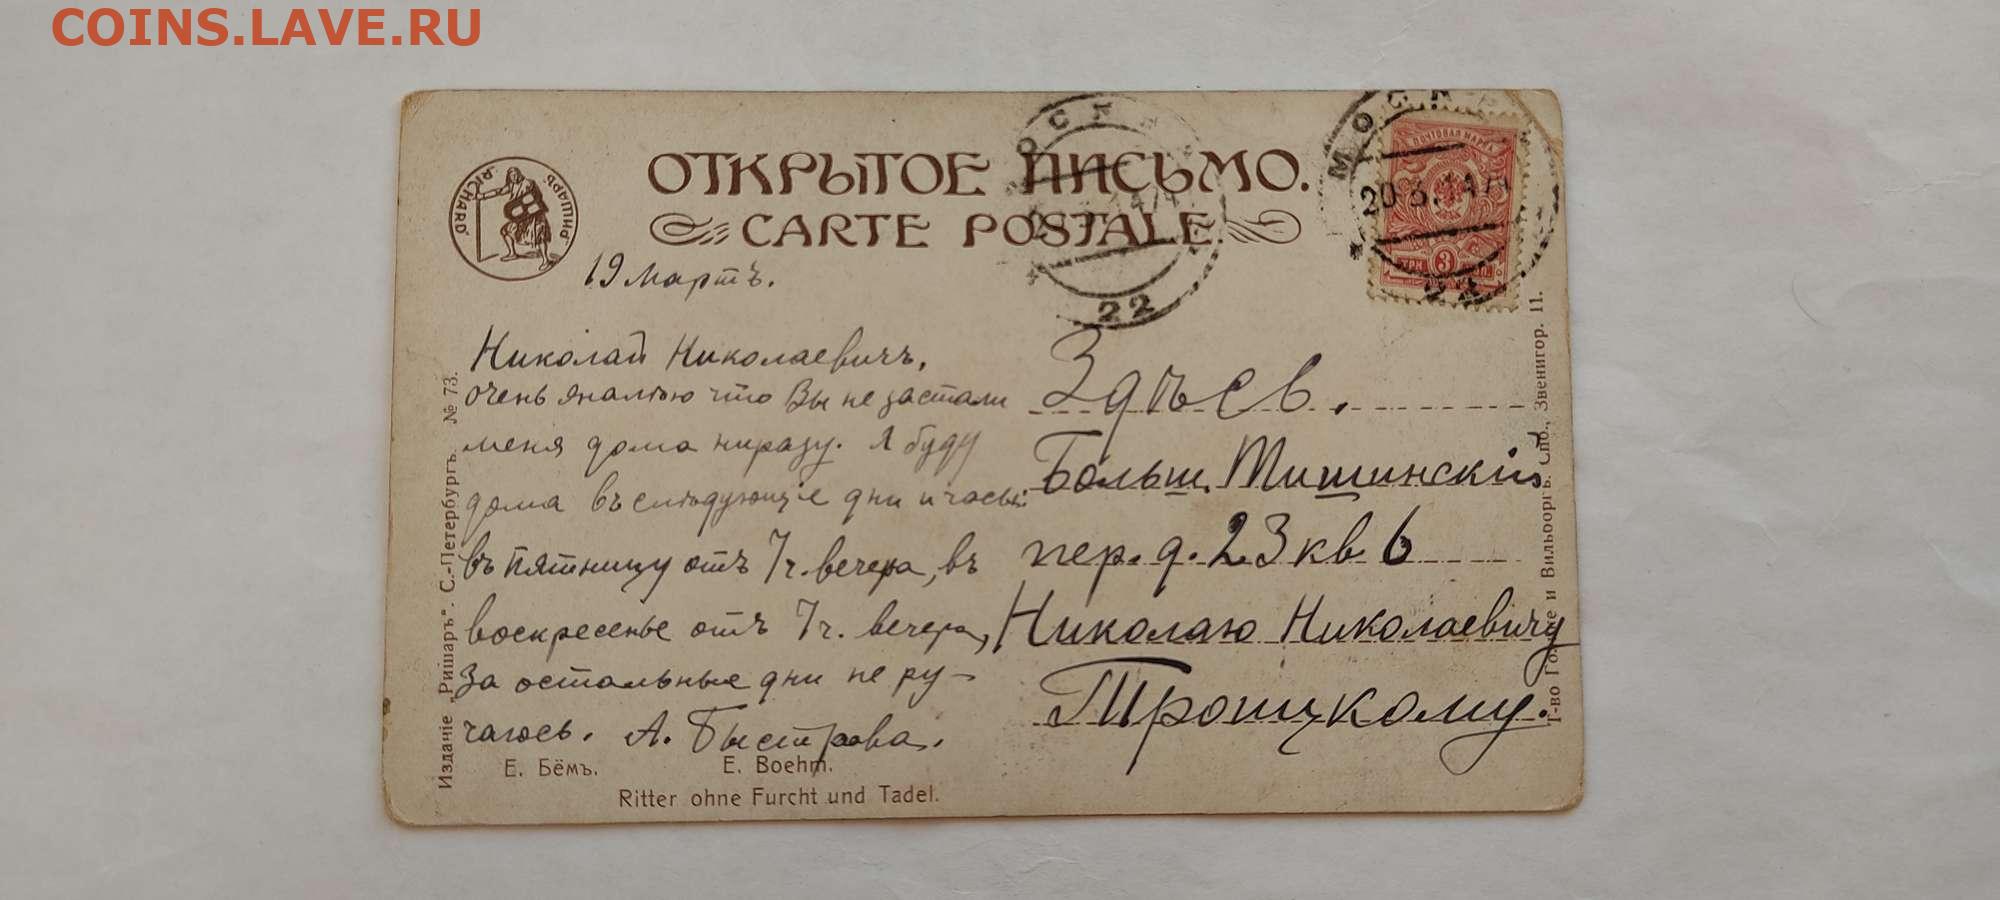 COINS.LAVE.RU
ОТКРЫТОЕ ПИСЬМО.
CARTE POSTALE.
РИШАРЪ
RICHARD
МОСКВА
22
МОСКВА
20.3.14
22
ПОЧТОВАЯ МАРКА
ТРИ 3 КОП.
19 Мартъ.
Николай Николаевичъ,
очень жалѣю что Вы не застали
меня дома ниразу. Я буду
дома въ слѣдующіе дни и часы:
въ пятницу отъ 7 ч. вечера, въ
воскресенье отъ 7 ч. вечера,
За остальные дни не ру-
чаюсь. А. Быстрова.
Здѣсь.
Больш. Тишинскій
пер. д. 23 кв 6
Николаю Николаевичу
Троицкому.
Е. Бёмъ.
E. Boehm.
Ritter ohne Furcht und Tadel.
Изданіе „Ришаръ“. С.-Петербургъ. № 73.
Т-во Голике и Вильборгъ. Спб., Звенигор. 11.